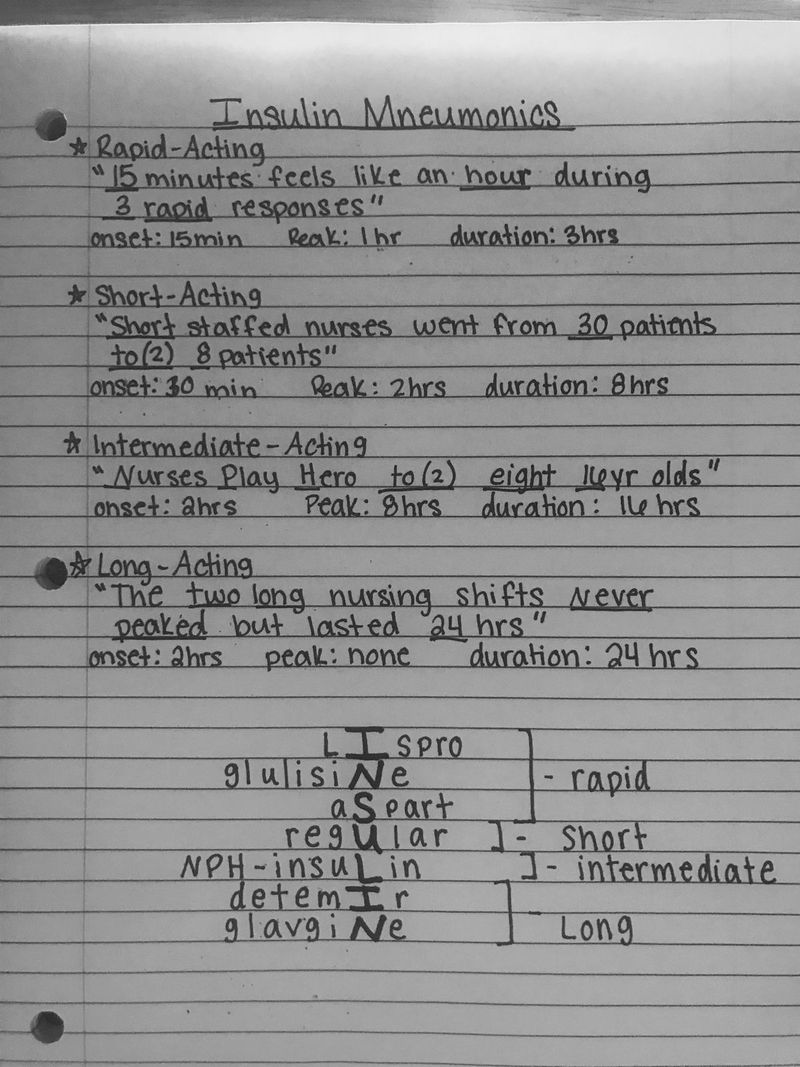 Insulin Mneumonics
☆ Rapid-Acting
"15 minutes feels like an hour during
3 rapid responses"
onset: 15min Peak: 1hr duration: 3hrs
☆ Short-Acting
"Short staffed nurses went from 30 patients
to(2) 8 patients"
onset: 30 min Peak: 2hrs duration: 8hrs
☆ Intermediate-Acting
"Nurses Play Hero to(2) eight 16yr olds"
onset: 2hrs Peak: 8hrs duration: 16 hrs
☆ Long-Acting
"The two long nursing shifts Never
peaked but lasted 24 hrs"
onset: 2hrs peak: none duration: 24 hrs
LIspro
glulisiNe - rapid
aSpart
regUlar ]- Short
NPH-insuLin ]- intermediate
detemIr
glavgiNe - Long